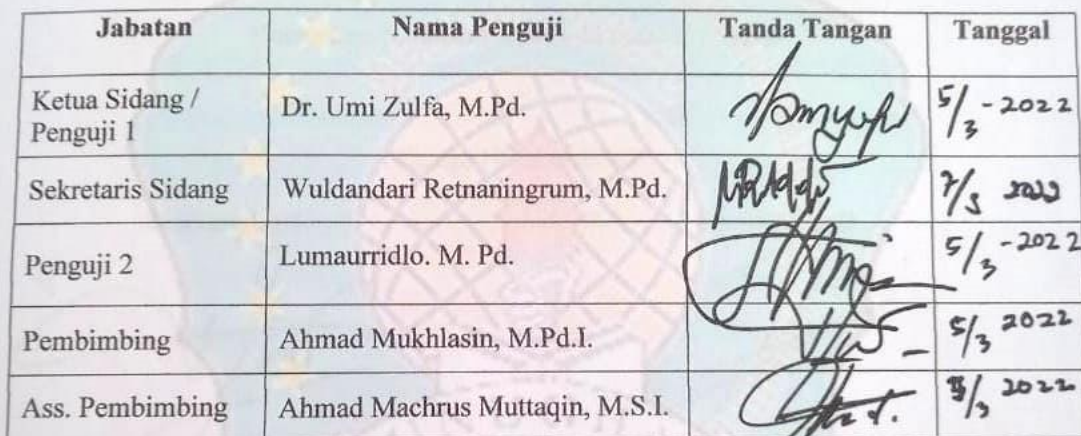 Jabatan Nama Penguji Tanda Tangan Tanggal
Ketua Sidang / Dr. Umi Zulfa, M.Pd. 5/3 - 2022
Penguji 1
Sekretaris Sidang Wuldandari Retnaningrum, M.Pd. 7/3 2022
Penguji 2 Lumaurridlo. M. Pd. 5/3 - 2022
Pembimbing Ahmad Mukhlasin, M.Pd.I. 5/3 2022
Ass. Pembimbing Ahmad Machrus Muttaqin, M.S.I. /3 2022